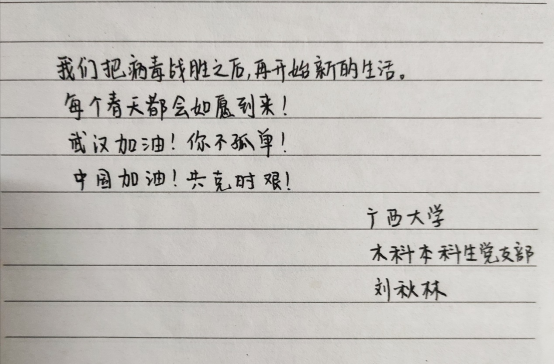 我们把病毒战胜之后,再开始新的生活。
每个春天都会如愿到来!
武汉加油!你不孤单!
中国加油!共克时艰!
广西大学
木科本科生党支部
刘秋林